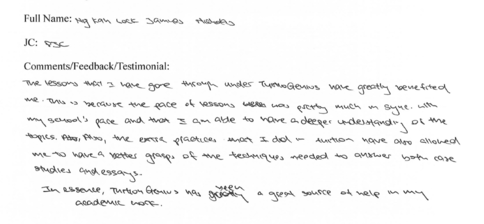 Full Name: Ng Kah Lock James Nicholas
JC: PJC
Comments/Feedback/Testimonial:
The lessons that I have gone through under TuitionGenius have greatly benefited
me. This is because the pace of lessons was pretty much in sync with
my school's pace and that I am able to have a deeper understanding of the
topics. Also, the extra practices that I did in tuition have also allowed
me to have a better grasp of the techniques needed to answer both case
studies and essays.
In essence, TuitionGenius has been a great source of help in my
academic work.